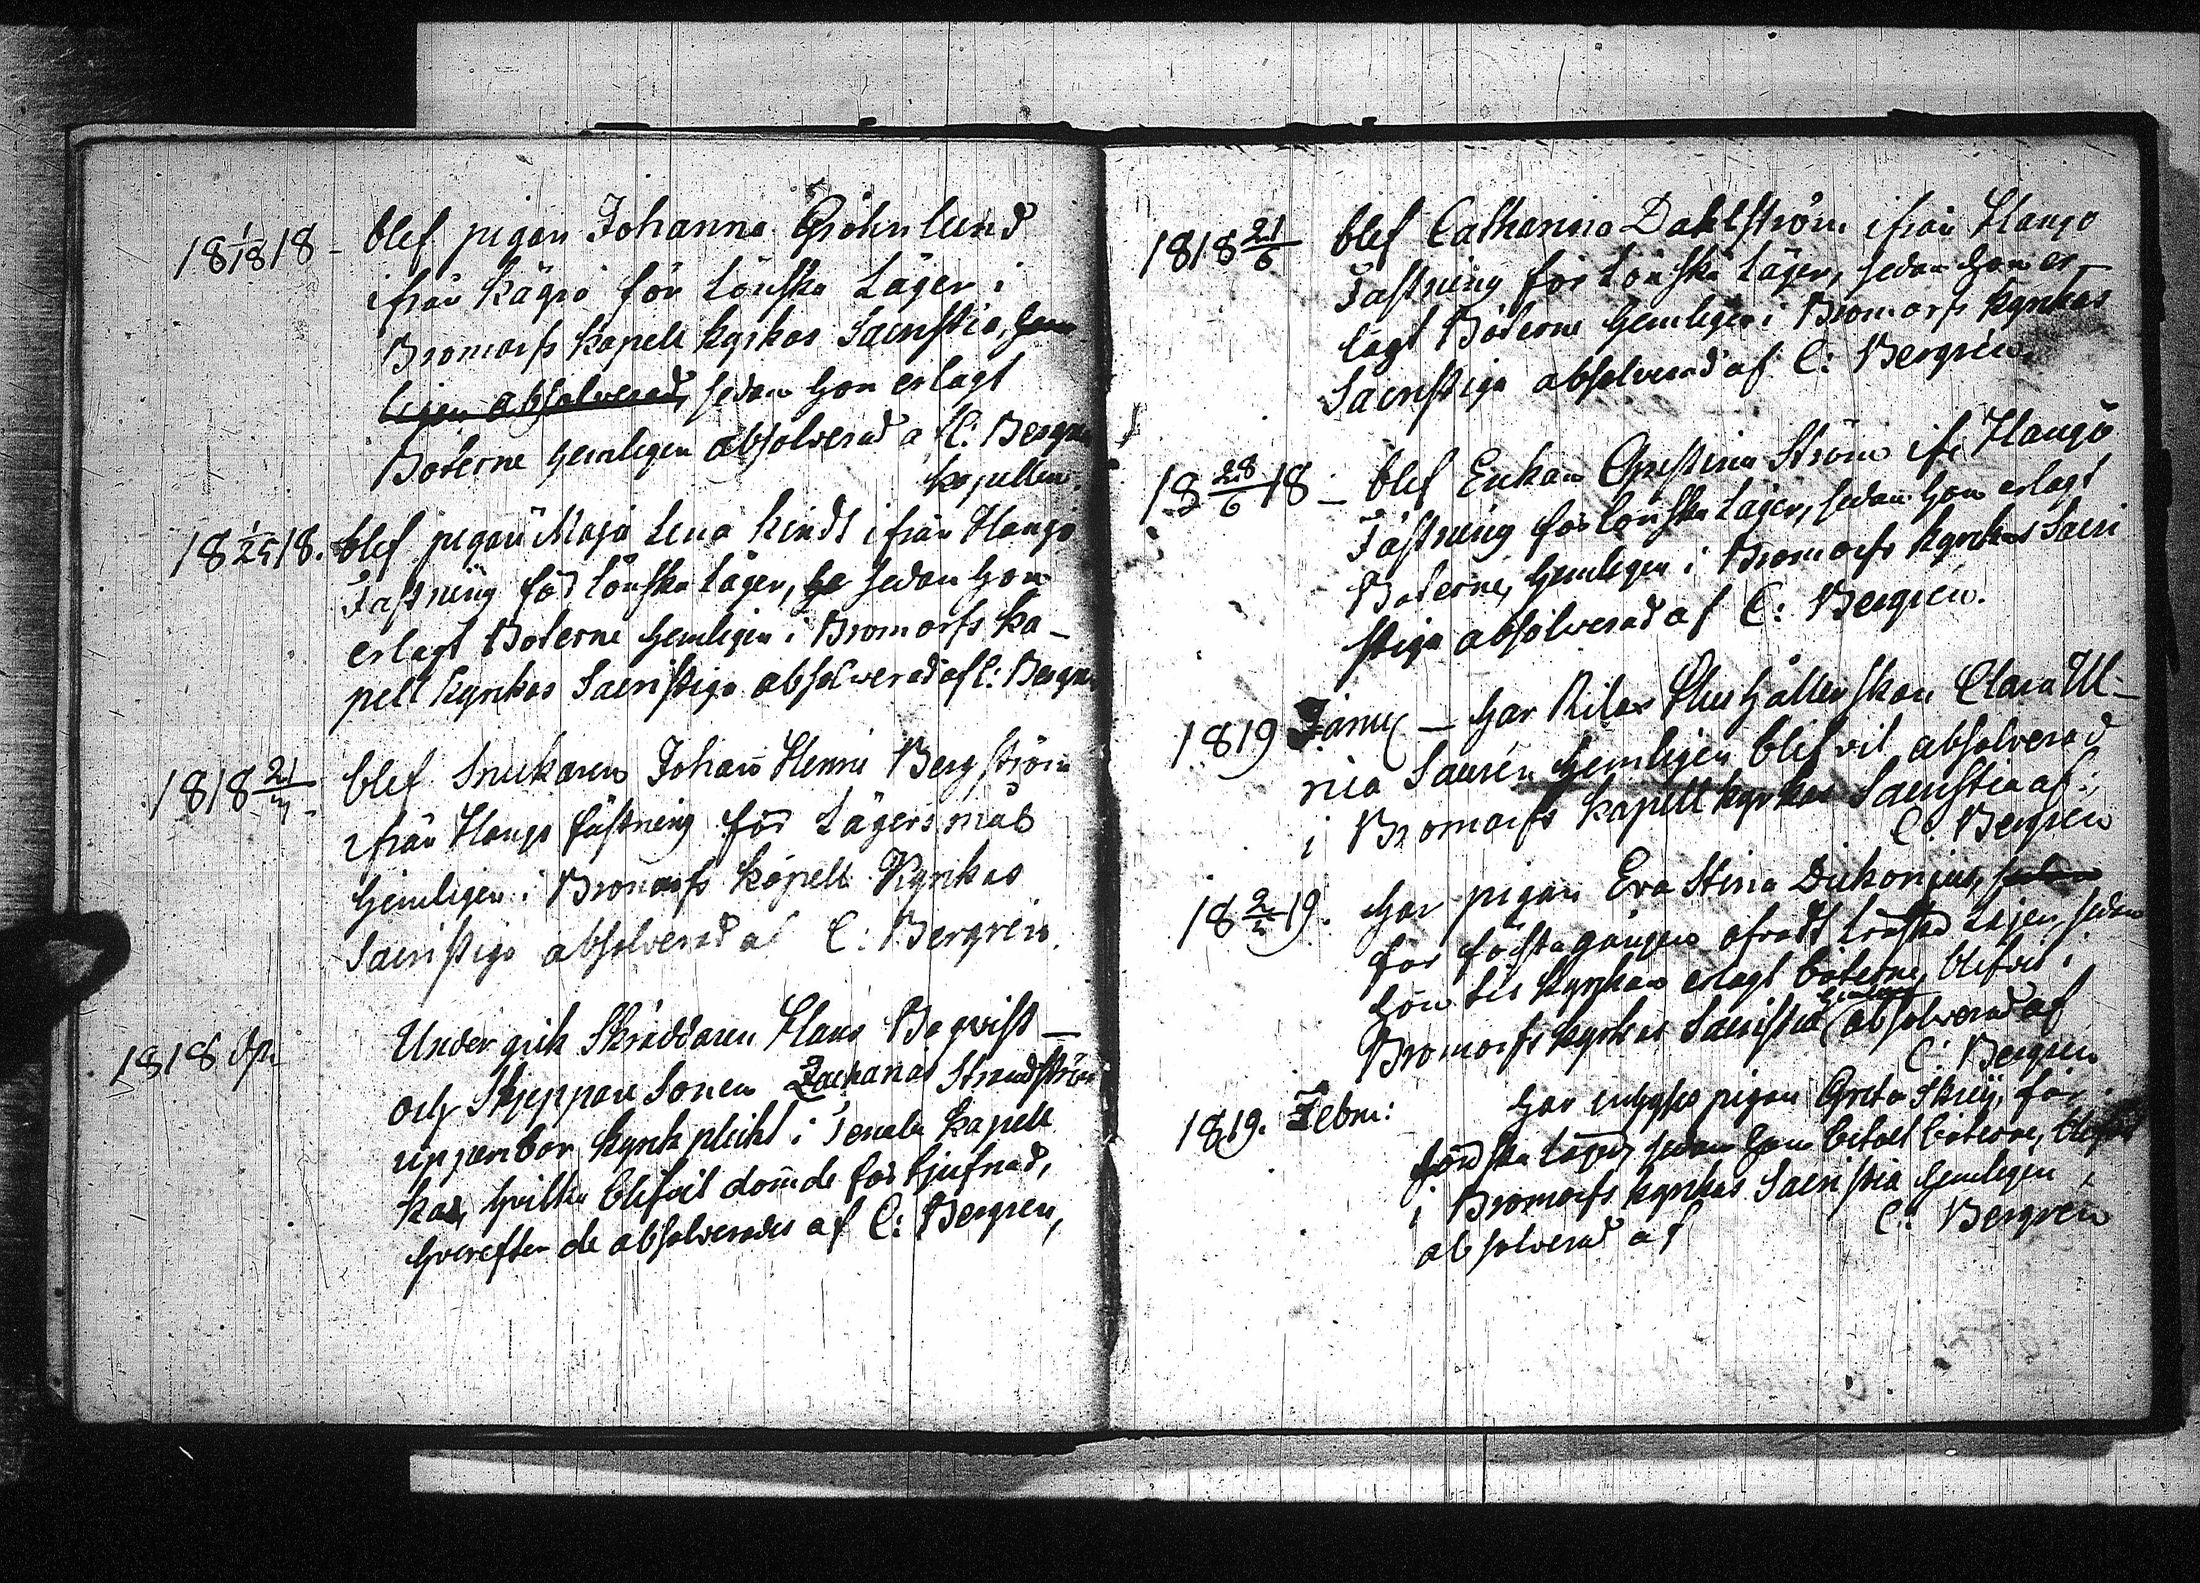 18 1/18 18 - blef pigan Johanna Gröhnlund
ifrån Kägrö för Lönska Läger i
Bromarfs Kapell Kyrkas Sacristia, hem
ligen absolverad, sedan hon erlagt
Böterne hemligen absolverad af C: Bergren
kapellan.
18 1/25 18. blef pigan Maja Lena Kindt ifrån Hangö
Fästning för Lönska Läger, he sedan hon
erlagt Böterne hemligen i Bromarfs Ka-
pell Kyrkas Sacristiga absolverad af C: Bergren
1818 21/ blef Snickaren Johan Henric Bergström
ifrån Hangö fästning för Lägersmål
hemligen i Bromarfs Kapell Kyrkas
Sacristiga absolverad af C: Bergren.
1818 Undergick Skräddaren Hans Begvist -
och Skjeppare Sonen Zacharias Strandström
uppenbar Kyrkplickt i Tenala Kapell
hvilka blifvit dömde för tjufnad,
hvarefter de absolverades af C: Bergren,
1818 21/6 blef Catharina Dahlström ifrån Hangö
Fästning för Lönska Läger, sedan hon er-
lagt Böterne hemligen i Bromarfs Kyrkas
Sacristiga absolverad af C: Bergren.
18 28/6 18 - blef Enkan Christina Ström if: Hangö
Fästning för Lönska Läger, sedan hon erlagt
Böterne, hemligen i Bromarfs Kyrkas Sacri
stiga absolverad af C: Bergren.
1819 - har Rilax Clara Ul-
rica Sauren hemligen blifvit absolverad
i Bromarfs Kapell kyrkas Sacristia af:
C: Bergren
18 2/2 19. har pigan Eva Stina Dickonjus, sedan
för första gången Läger, sedan
hon till Kyrkan erlagt böterne, blifvit i
Bromarfs Kyrkas Sacristia hemligen absolverad af
C: Bergren
1819. Febru: har pigan Greta för
Läger, sedan hon betalt böterne, blifvit
i Bromarfs Kyrkas Sacristia hemligen
absolverad af C: Bergren